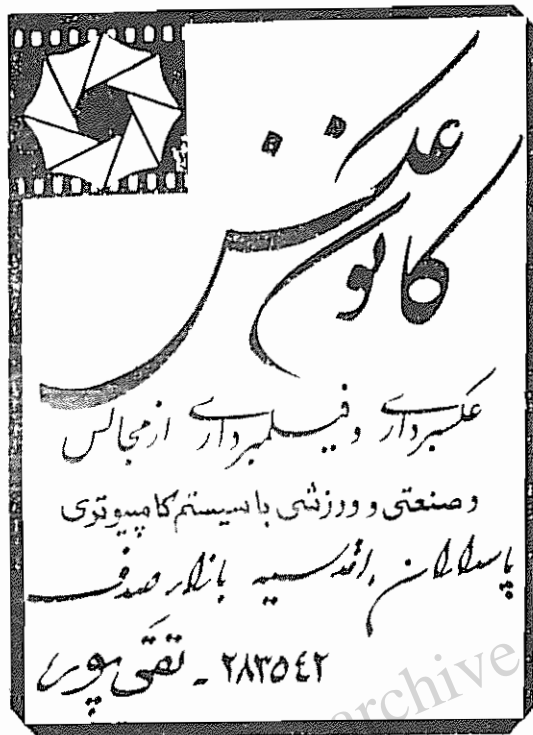 کانون عکس
عکسبرداری و فیلمبرداری از مجالس
و صنعتی و ورزشی با سیستم کامپیوتری
پاسداران، اقدسیه بازار صدف
۲۸۳۵۴۲ - تقی پور
archive